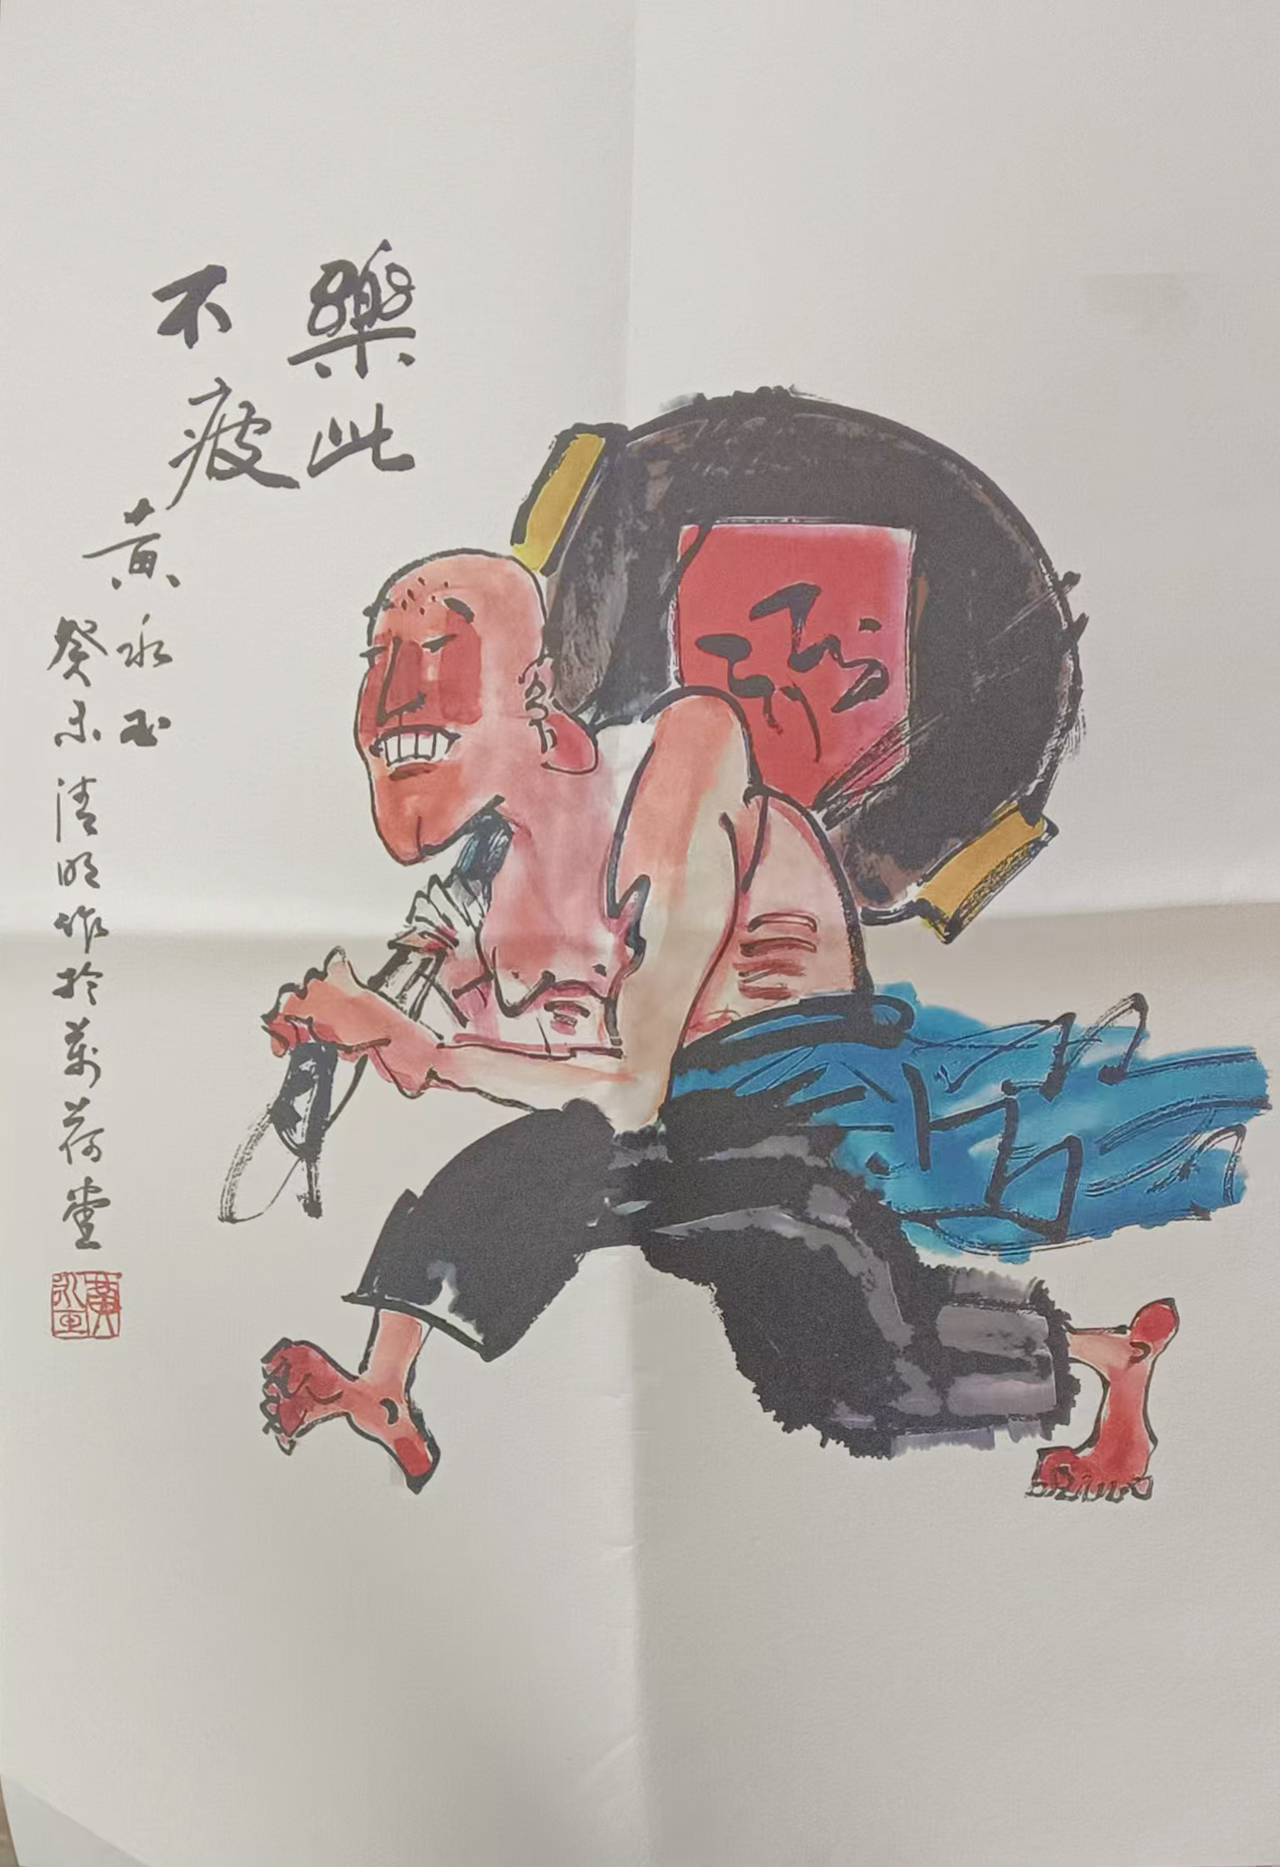 樂此
不疲
黄永玉
癸未清明作於萬荷堂
酒
黄永玉